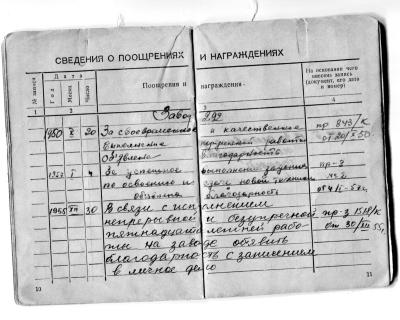 СВЕДЕНИЯ О ПООЩРЕНИЯХ И НАГРАЖДЕНИЯХ
№ записи
Дата
Год
Месяц
Число
Поощрения и награждения
На основании чего внесена запись (документ, его дата и номер)
1 2 3 4
Завод
1950 X 20 За своевременное и качественное пр 843/к
выполнение работы от 20/X 50.
Объявлена благодарность
I 4 За успешное выполнение задания пр-з
по освоению и сдаче новой техники № 2
благодарность от 4/I-
1955 XII 30 В связи с исполнением
непрерывной и безупречной пр-з 1518/к
пятнадцатилетней рабо- от 30/XII 55г.
ты на заводе объявить
благодарность с занесением
в личное дело
10 11